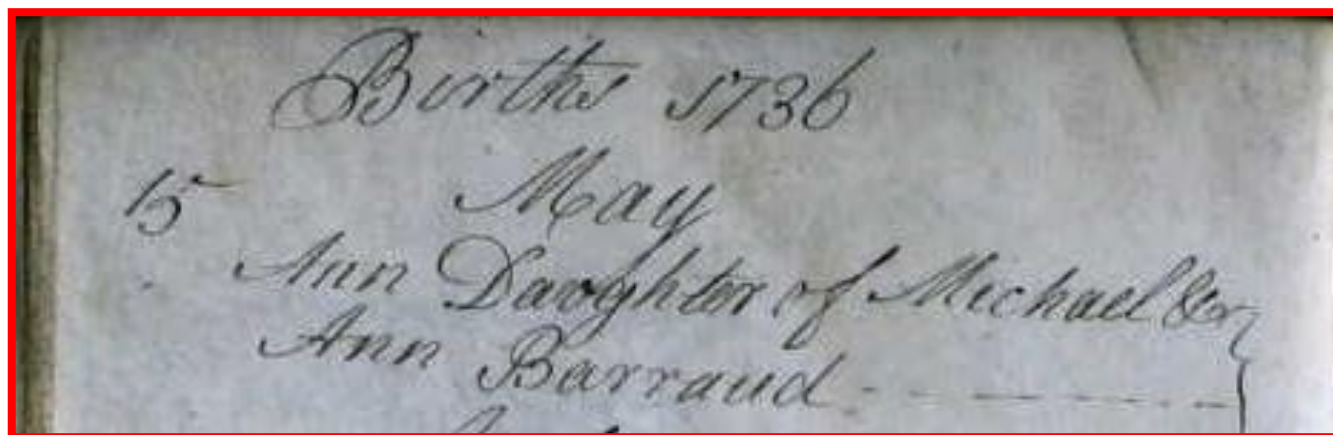 Births 1736
15 May
Ann Daughter of Michael &
Ann Barraud